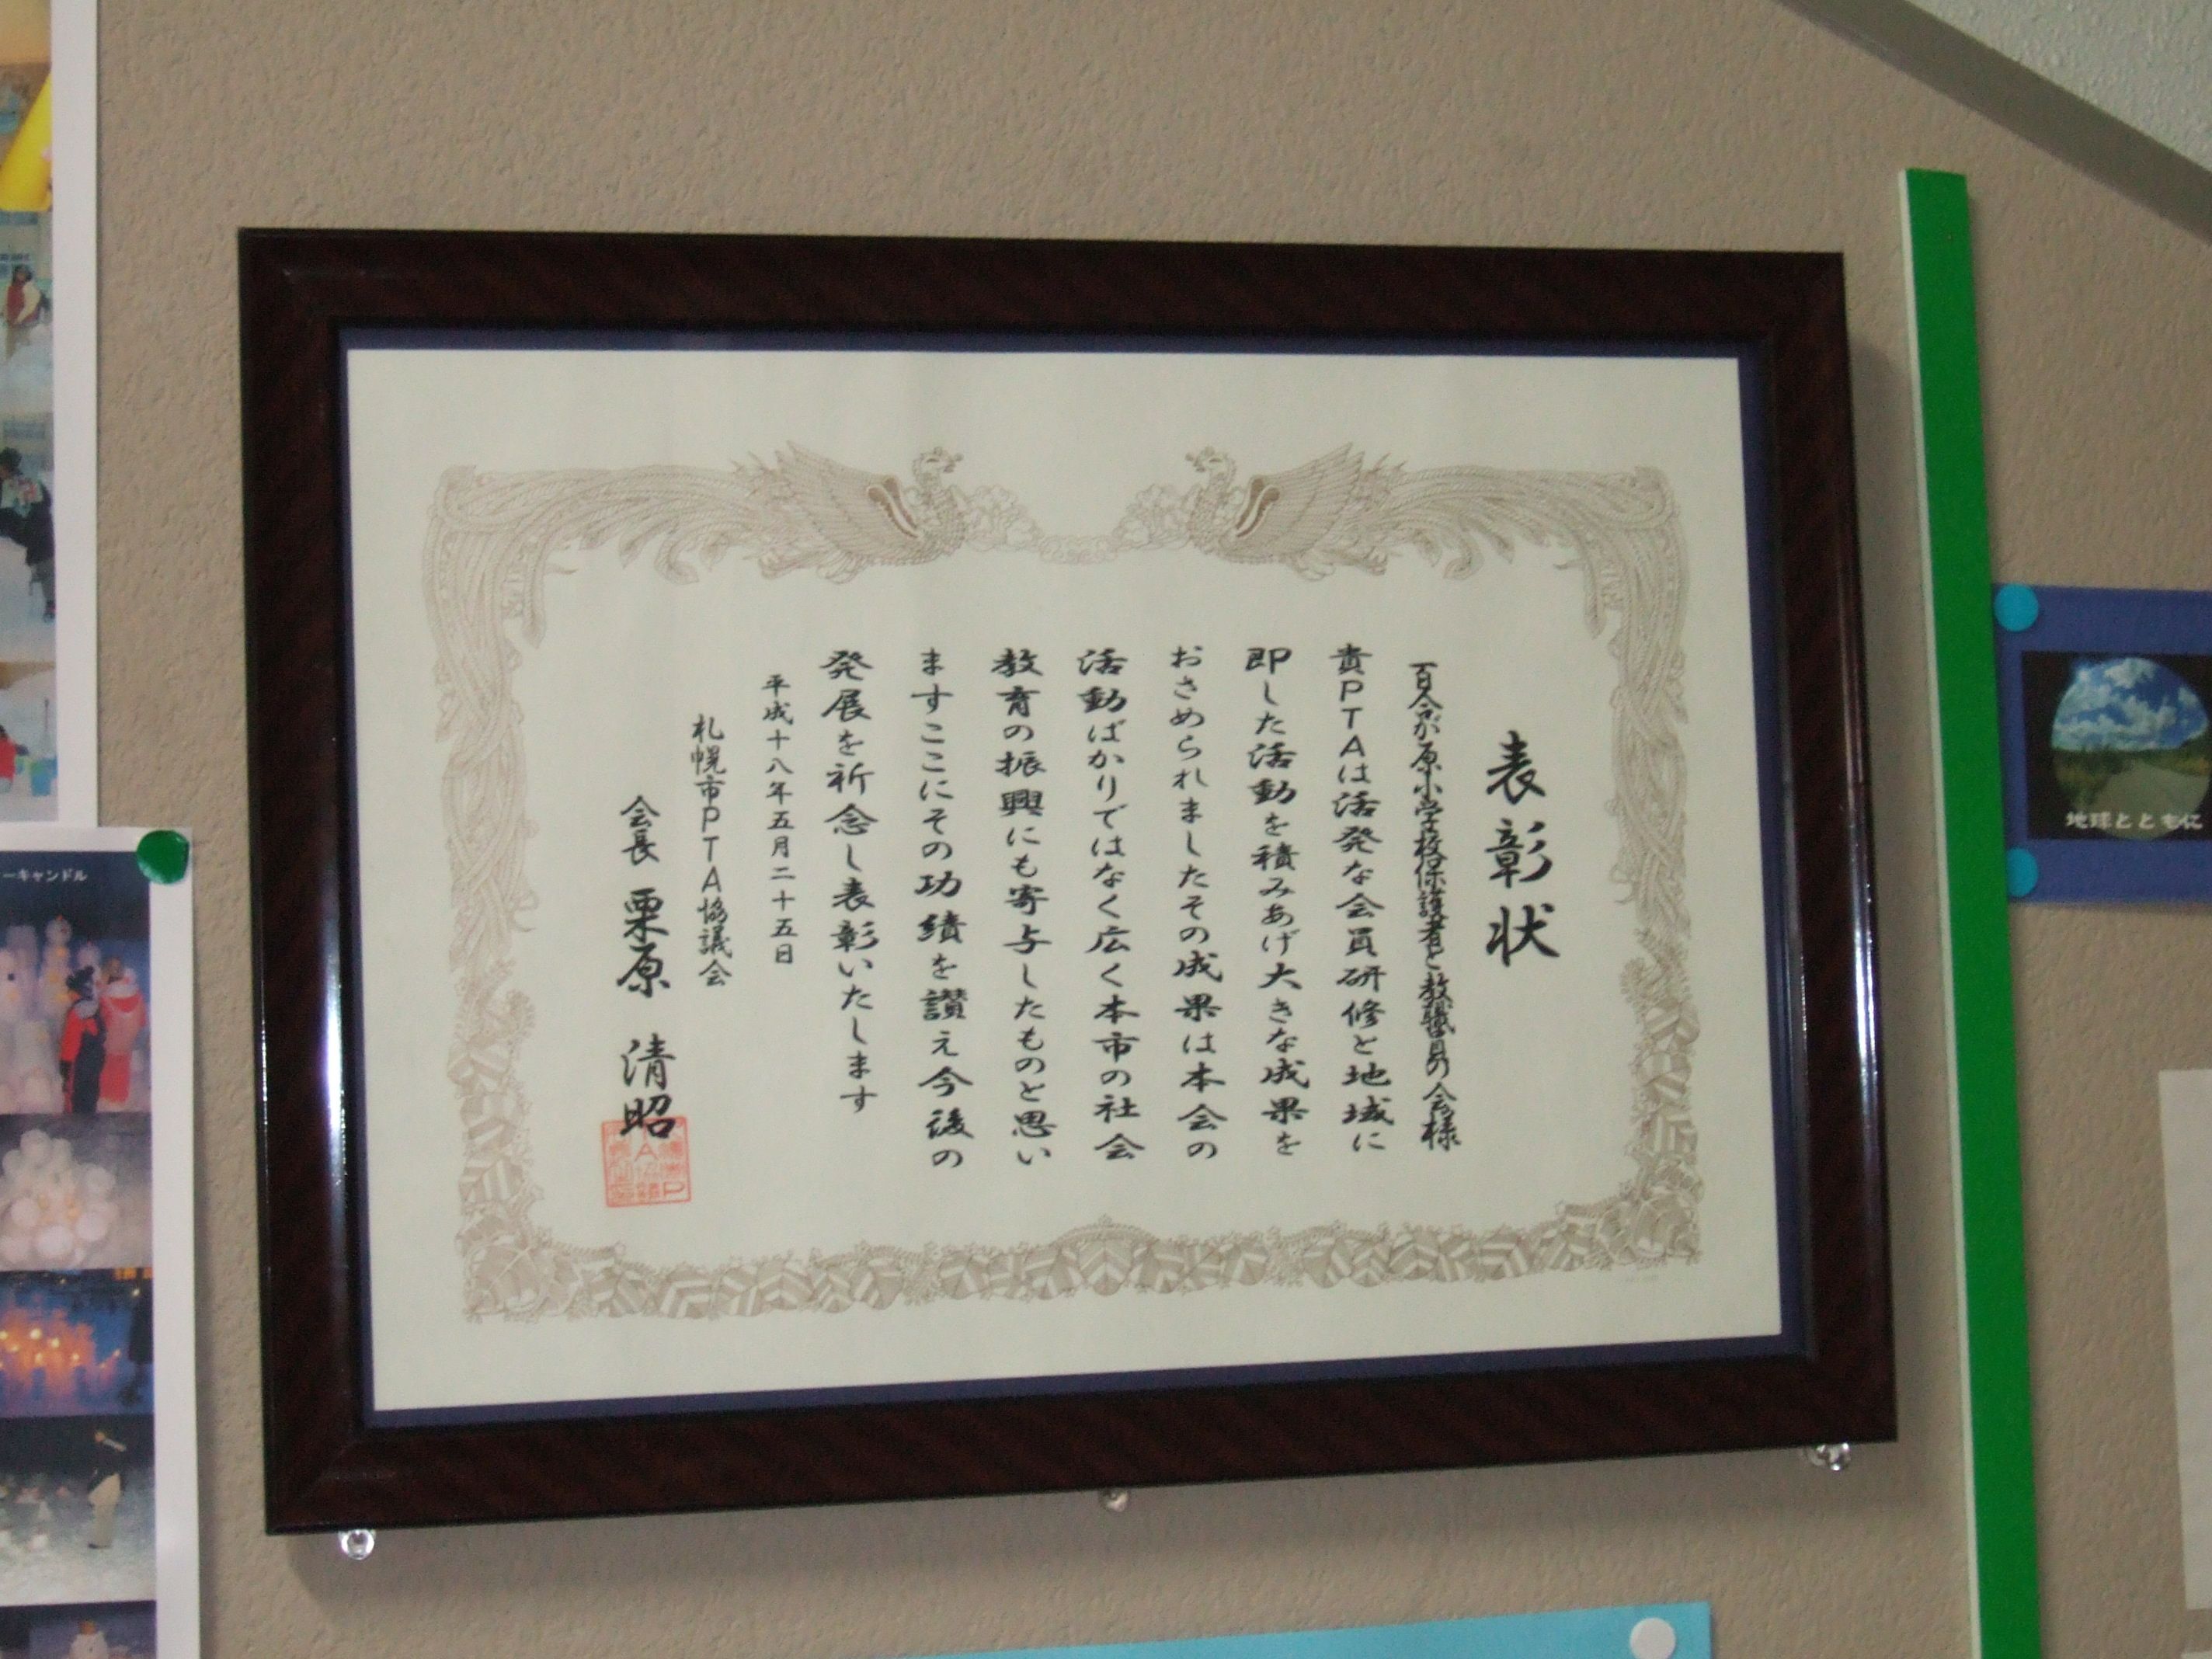 表彰状
百合が原小学校保護者と教職員の会様
貴PTAは活発な会員研修と地域に
即した活動を積みあげ大きな成果を
おさめられましたその成果は本会の
活動ばかりではなく広く本市の社会
教育の振興にも寄与したものと思い
ますここにその功績を讃え今後の
発展を祈念し表彰いたします
平成十八年五月二十五日
札幌市PTA協議会
会長 栗原 清昭
地球とともに
ーキャンドル